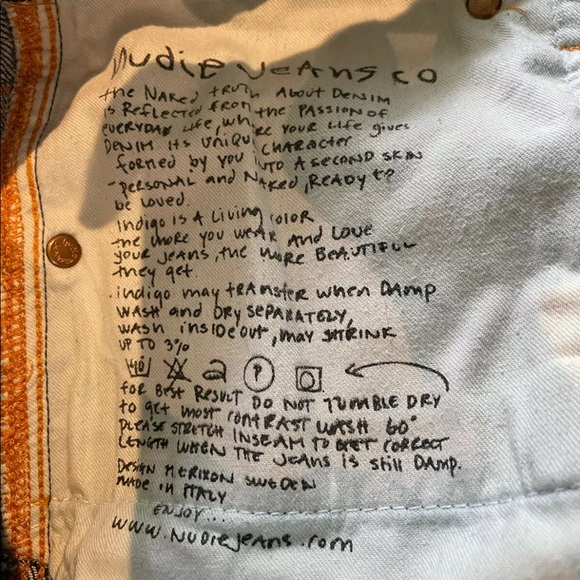 Nudie Jeans co
the Naked truth About Denim
is Reflected from the Passion of
everyday life, where your life gives
Denim its unique character
formed by you into a second skin
-personal and Naked, Ready to
be loved.
Indigo is a living color
the more you wear and love
your jeans, the more beautiful
they get.
indigo may transfer when damp
wash and dry separately,
wash inside out, may shrink
up to 3%
40 P
for best result do not tumble dry
to get most contrast wash 60°
please stretch inseam to get correct
length when the jeans is still damp.
Design Herixon Sweden
made in Italy
enjoy...
www.nudiejeans.com